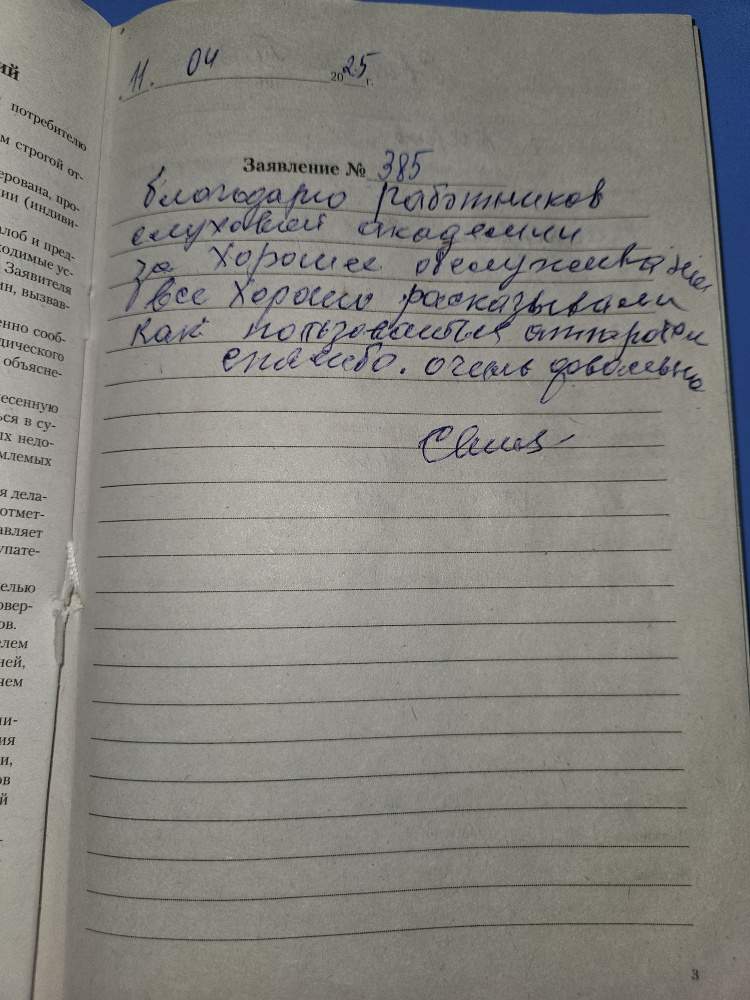 ий
потребителю
м строгой от-
ерована, про-
нии (индиви-
алоб и пред-
ходимые ус-
Заявителя
ин, вызвав-
енно сооб-
дического
объясне-
есенную
ься в су-
ых недо-
млемых
я дела-
отмет-
авляет
упате-
елью
овер-
ов.
елем
ней,
чем
ли-
ия
и,
ов
й
11. 04 2025 г.
Заявление № 385
благодарю работников
слуховой академии
за хорошее обслуживание
все хорошо расказывали
как пользоваться аппаратом
спасибо. очень довольна
3